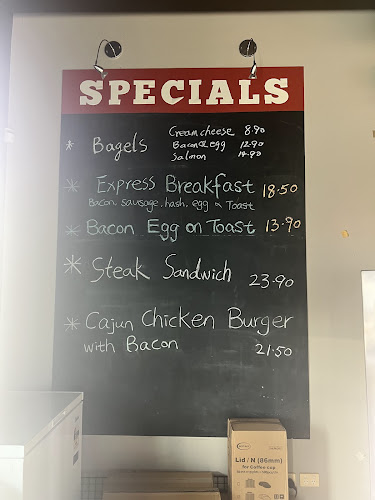 SPECIALS
* Bagels
Cream cheese 8.90
Bacon & Egg 12.90
Salmon 14.90
* Express Breakfast 18.50
Bacon, sausage, hash, egg & Toast
* Bacon Egg on Toast 13.90
* Steak Sandwich 23.90
* Cajun Chicken Burger
with Bacon 21.50
Lid / N (86mm)
for Coffee cup